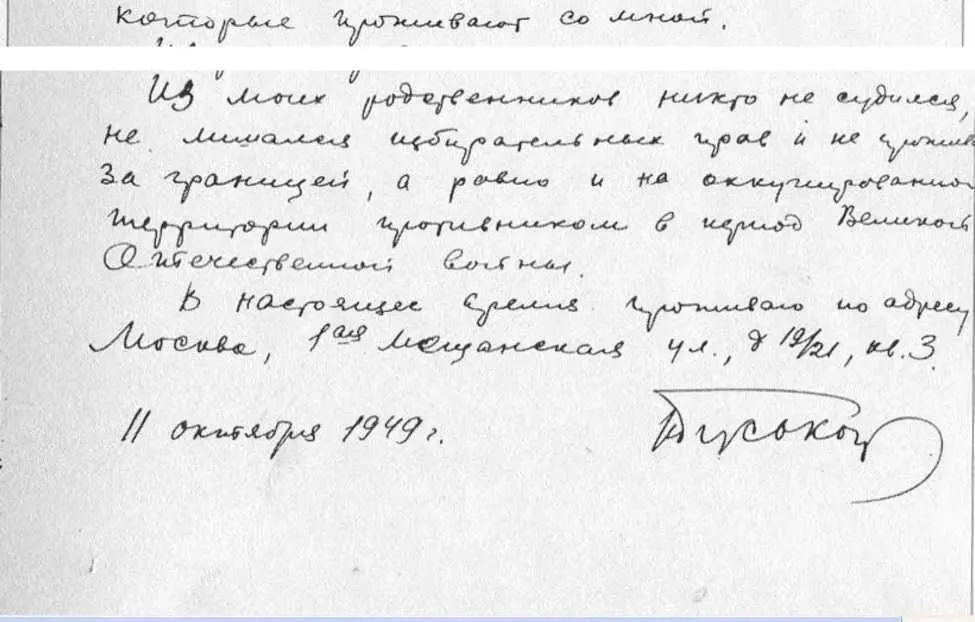 которые проживают со мной.
Из моих родственников никто не судился,
не лишался избирательных прав и не прожив
за границей, а равно и на оккупированной
территории противником в период Великой
Отечественной войны.
В настоящее время проживаю по адресу
Москва, 1ая Мещанская ул., д 19/21, кв. 3.
11 октября 1949 г.